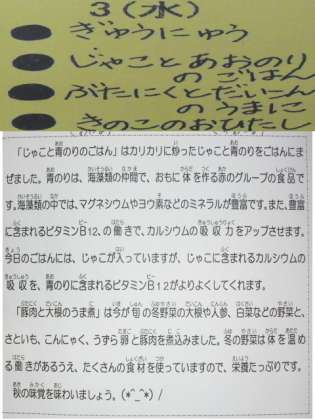 3(水)
ぎゅうにゅう
じゃことあおのり
のごはん
ぶたにくとだいこん
のうまに
きのこのおひたし
「じゃこと青のりのごはん」はカリカリに炒ったじゃこと青のりをごはんにま
ぜました。青のりは、海藻類の仲間で、おもに体を作る赤のグループの食品で
す。海藻類の中では、マグネシウムやヨウ素などのミネラルが豊富です。また、豊富
に含まれるビタミンB12、の働きで、カルシウムの吸収力をアップさせます。
今日のごはんには、じゃこが入っていますが、じゃこに含まれるカルシウムの
吸収を、青のりに含まれるビタミンB12がよりよくしてくれます。
「豚肉と大根のうま煮」は今が旬の冬野菜の大根や人参、白菜などの野菜と、
さといも、こんにゃく、うずら卵と豚肉を煮込みました。冬の野菜は体を温め
る働きがあるうえ、たくさんの食材を使っていますので、栄養たっぷりです。
秋の味覚を味わいましょう。(*^_^*)/